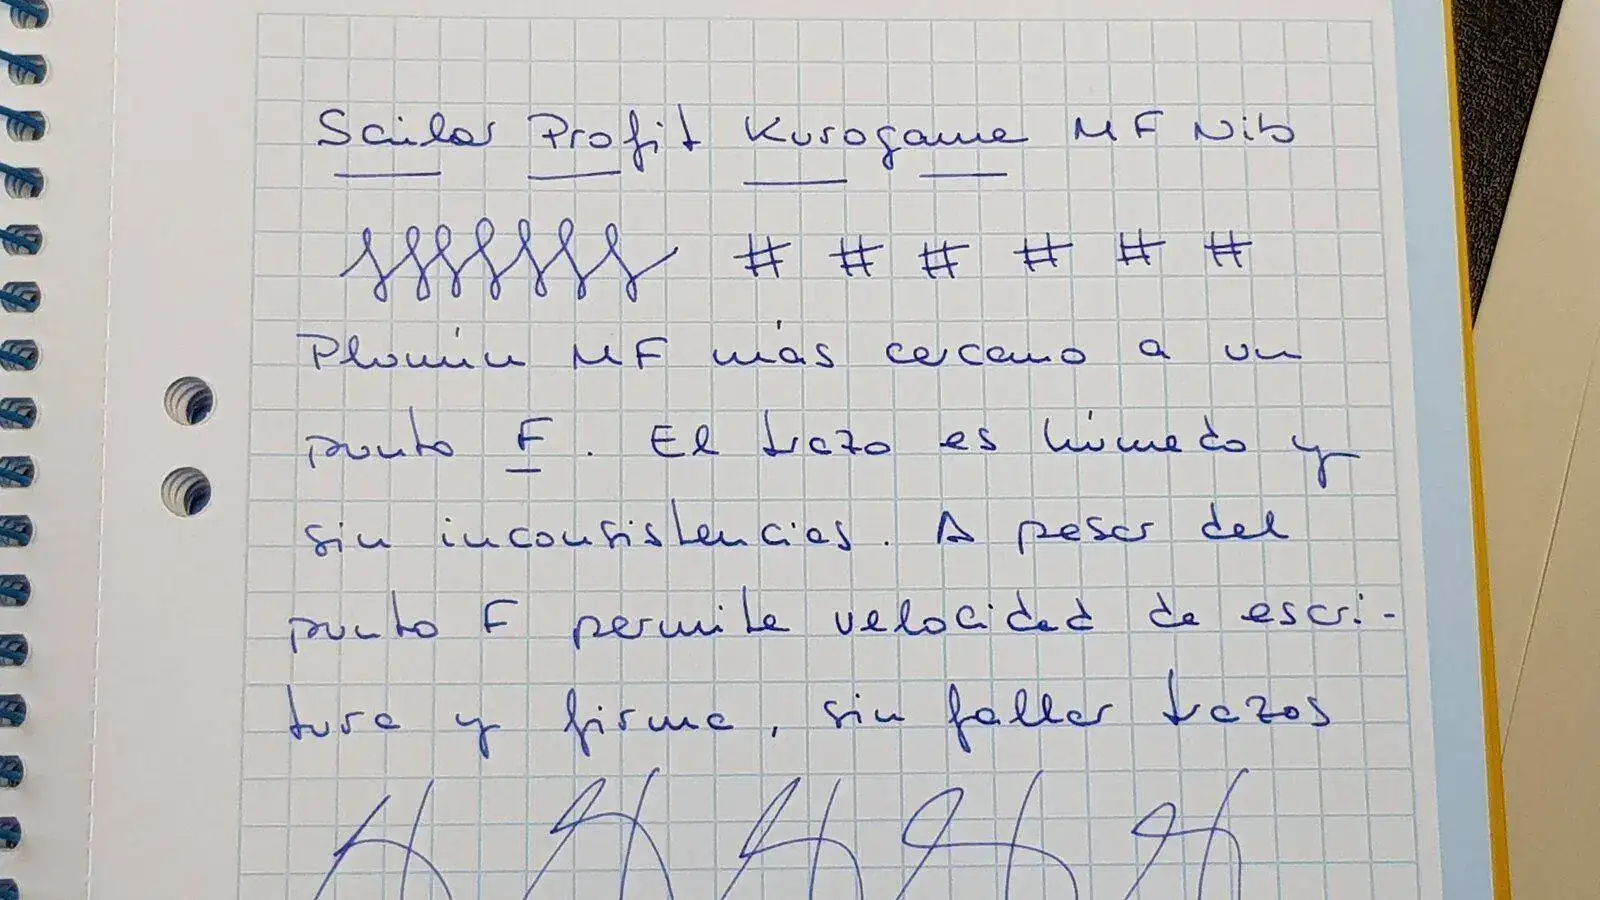 Sailor Profit Kurogane MF Nib
# # # # # #
Plumín MF más cercano a un
punto F. El trazo es húmedo y
sin inconsistencias. A pesar del
punto F permite velocidad de escri-
tura y firma, sin fallar trazos